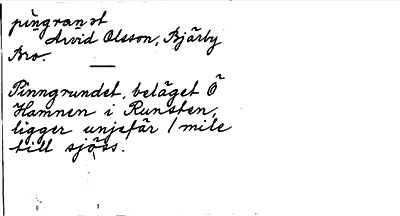 pingranət
Arvid Olsson, Bjärby
Bro.
Pinngrundet, beläget Ö
Hamnen i Runsten,
ligger unjefär 1 mile
till sjöss.